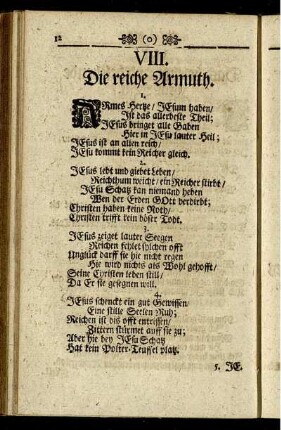 12 (o)
VIII.
Die reiche Armuth.
1.
ARmes Hertze/ JEsum haben/
Ist das allerbeste Theil;
JEsus bringet alle Gaben
Hier in JEsu lauter Heil;
JEsus ist an allen reich/
JEsu kommt kein Reicher gleich.
2.
JEsus lebt und giebet Leben/
Reichthum weicht/ ein Reicher stirbt/
JEsu Schatz kan niemand heben
Wen der Erden GOtt verdirbt;
Christen haben keine Noth/
Christen trifft kein böser Todt.
3.
JEsus zeiget lauter Seegen
Reichen fehlet solchen offt
Unglück darff sie hie nicht regen
Hie wird nichts als Wohl gehofft/
Seine Christen leben still/
Da Er sie gesegnen will.
4.
JEsus schenckt ein gut Gewissen/
Eine stille Seelen Ruh;
Reichen ist dis offt entrissen/
Zittern stürmet auff sie zu;
Aber hie bey JEsu Schatz
Hat kein Polter-Teuffel platz.
5. JE.